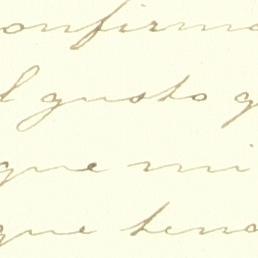 onfirma
l gusto q
que mi
que teno